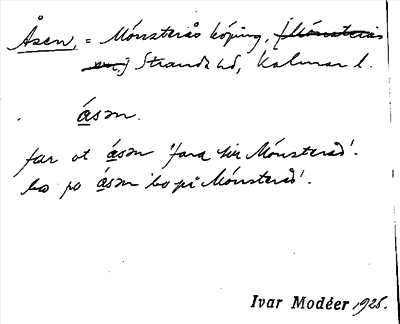 Åsen, = Mönsterås köping, [Mönsterås
sn] Stranda hd, Kalmar l.
åsən.
far ot åsən 'fara till Mönsterås'.
bo po åsən 'bo på Mönsterås'.
Ivar Modéer 1925.